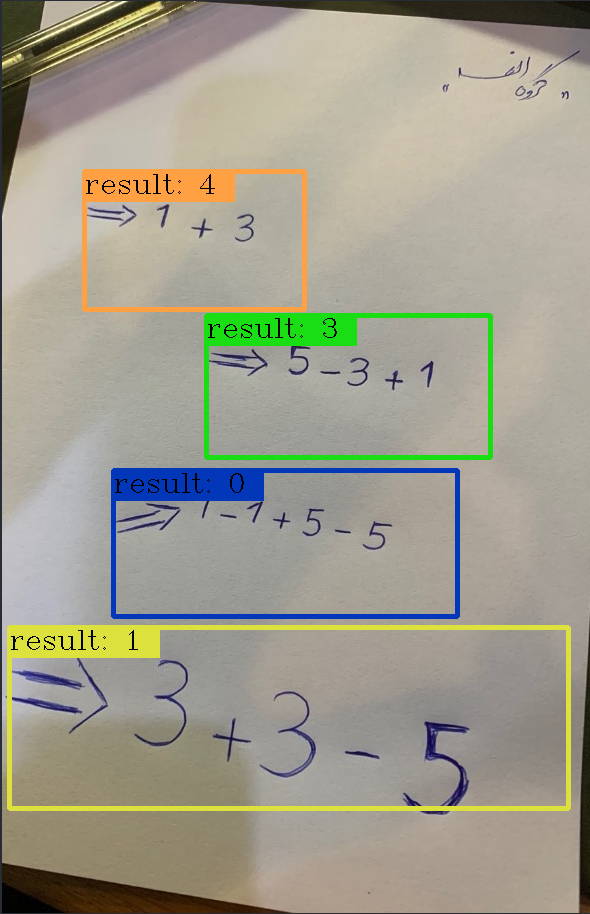 الف
" گروه "
result: 4
⇒ 1 + 3
result: 3
⇒ 5 - 3 + 1
result: 0
⇒ 1 - 1 + 5 - 5
result: 1
⇒ 3 + 3 - 5